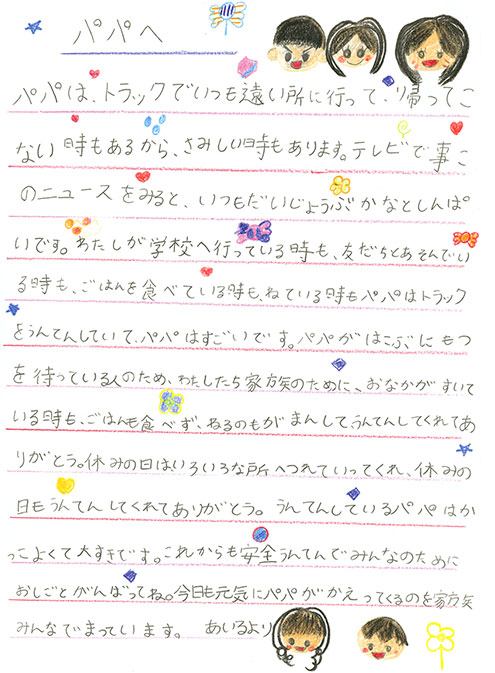 パパへ
パパは、トラックでいつも遠い所に行って、帰ってこ
ない時もあるから、さみしい時もあります。テレビで事こ
のニュースをみると、いつもだいじょうぶかなとしんぱ
いです。わたしが学校へ行っている時も、友だちとあそんでい
る時も、ごはんを食べている時も、ねている時もパパはトラック
をうんてんしていて、パパはすごいです。パパがはこぶにもつ
を待っている人のため、わたしたち家族のために、おなかがすいて
いる時も、ごはんも食べず、ねるのもがまんしてうんてんしてくれてあ
りがとう。休みの日はいろいろな所へつれていってくれ、休みの
日もうんてんしてくれてありがとう。うんてんしているパパはか
っこよくて大すきです。これからも安全うんてんでみんなのために
おしごとがんばってね。今日も元気にパパがかえってくるのを家族
みんなでまっています。 あいるより